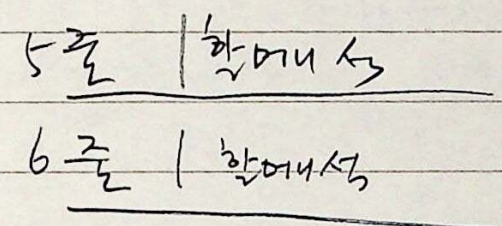 5줄 | 할머니석
6줄 | 할머니석